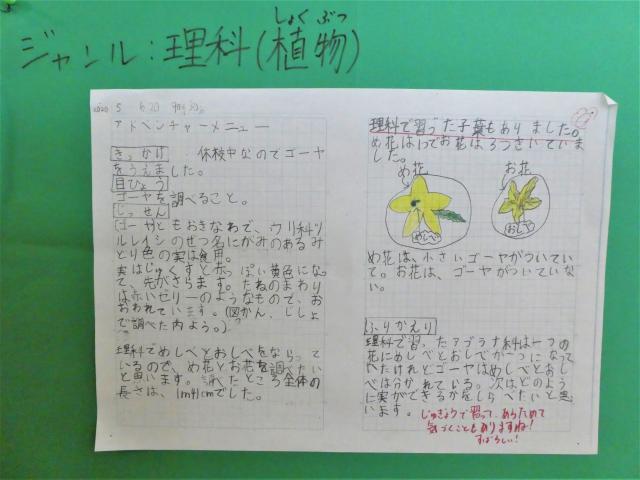 しょくぶつ
ジャンル:理科(植物)
2020 5 6/20
アドベンチャーメニュー
きっかけ 休校中なのでゴーヤ
をうえました。
目ひょう
ゴーヤを調べること。
じっせん
(ゴーヤ)ともおきなわで、ウリ科ツ
ルレイシのせつ名にがみのあるみ
どり色の実は食用。
実はじゅくすと赤っぽい黄色にな
て、先がさらます。たねのまわり
は赤いゼリーのようなもので、お
おわれています。(図かん、じしょ
で調べた内よう。)
理科でめしべとおしべをならって
いるので、め花とお花を調べたい
と思います。調べたところ全体の
長さは、1m41cmでした。
理科で習った子葉もありました。
め花は1つでお花は3つさいていま
した。
め花 お花
めしべ おしべ
め花は、小さいゴーヤがついてい
て。お花は、ゴーヤがついていな
い。
ふりかえり
理科で習ったアブラナ科は一つの
花にめしべとおしべが一つになって
いたけれどゴーヤはめしべとおし
べは分かれている。次はどのよう
に実ができるかをしらべたいと思
います。
じゅぎょうで習って、あらためて
気づくこともありますね!
すばらしい!